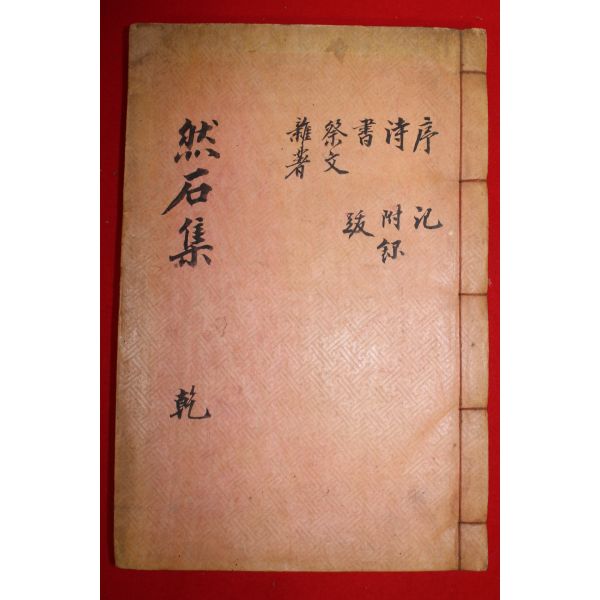 序 記
詩 附錄
書 跋
祭文
雜著
然石集 乾